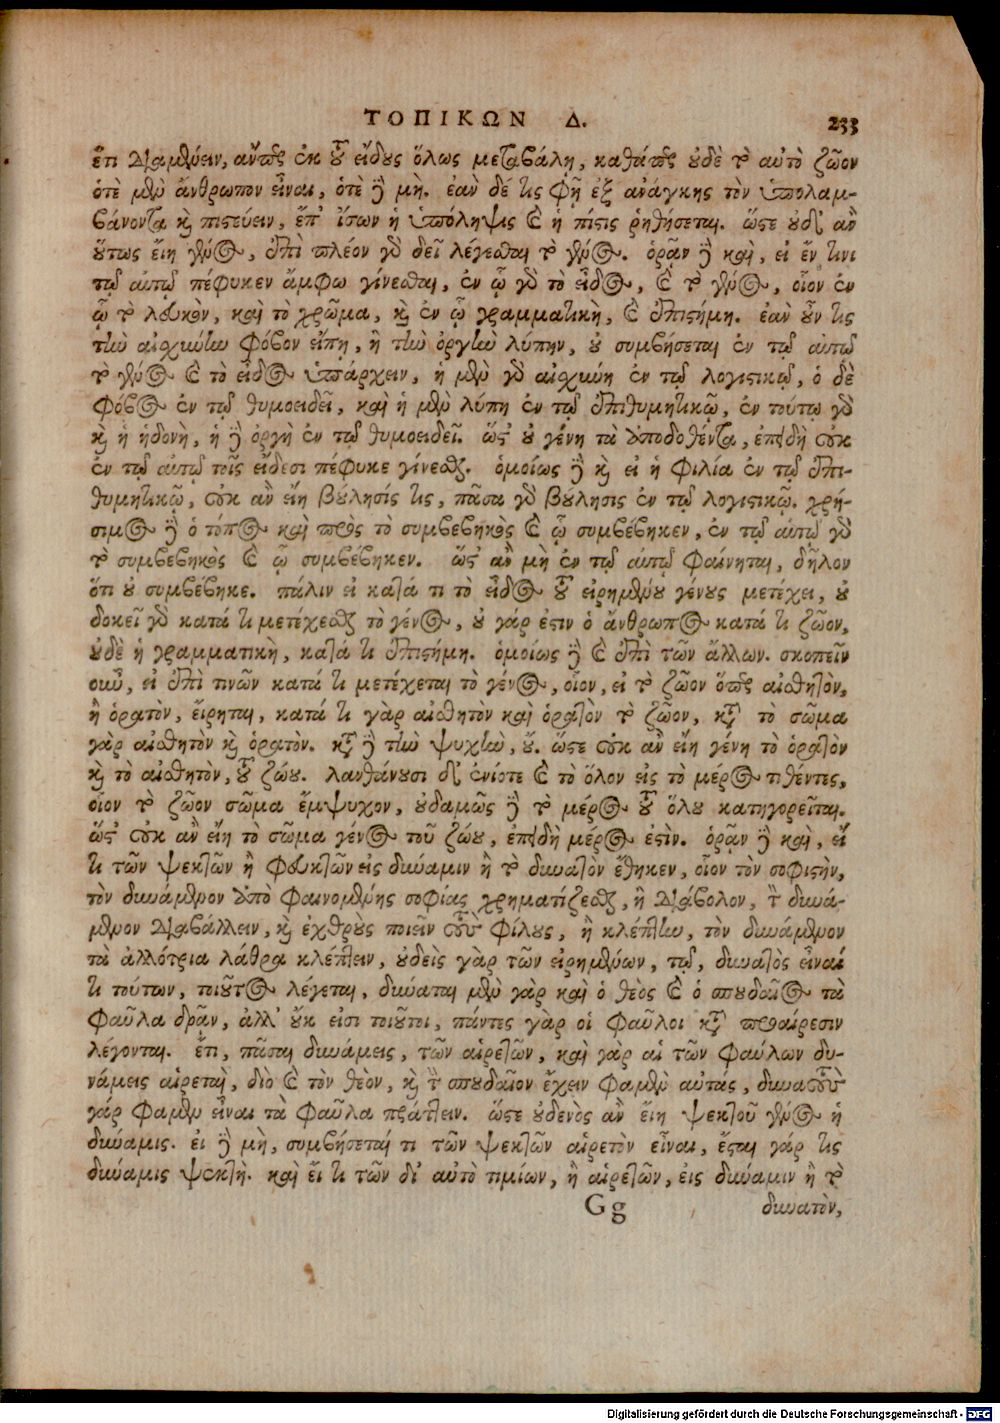 ΤΟΠΙΚΩΝ Δ. 233
ἔτι διαμένειν, αὐτῆς ἐκ τοῦ εἴδους ὅλως μεταβάλῃ, καθάπερ οὐδὲ τὸ αὐτὸ ζῶον
ὁτὲ μὲν ἄνθρωπον εἶναι, ὁτὲ δὲ μή. ἐὰν δέ τις φῇ ἐξ ἀνάγκης τὸν ὑπολαμ-
βάνοντα καὶ πιστεύειν, ἐπ' ἴσων ἡ ὑπόληψις καὶ ἡ πίστις ῥηθήσεται. ὥστε οὐδ' ἂν
οὕτως εἴη γένος, ἐπὶ πλέον γὰρ δεῖ λέγεσθαι τὸ γένος. ὁρᾶν δὲ καὶ, εἰ ἔν τινι
τῷ αὐτῷ πέφυκεν ἄμφω γίνεσθαι, ἐν ᾧ γὰρ τὸ εἶδος, καὶ τὸ γένος, οἷον ἐν
ᾧ τὸ λευκὸν, καὶ τὸ χρῶμα, καὶ ἐν ᾧ γραμματικὴ, καὶ ἐπιστήμη. ἐὰν οὖν τις
τὴν αἰσχύνην φόβον εἴπῃ, ἢ τὴν ὀργὴν λύπην, οὐ συμβήσεται ἐν τῷ αὐτῷ
τὸ γένος καὶ τὸ εἶδος ὑπάρχειν, ἡ μὲν γὰρ αἰσχύνη ἐν τῷ λογιστικῷ, ὁ δὲ
φόβος ἐν τῷ θυμοειδεῖ, καὶ ἡ μὲν λύπη ἐν τῷ ἐπιθυμητικῷ, ἐν τούτῳ γὰρ
καὶ ἡ ἡδονὴ, ἡ δὲ ὀργὴ ἐν τῷ θυμοειδεῖ. ὥστ' οὐ γένη τὰ ἀποδοθέντα, ἐπειδὴ οὐκ
ἐν τῷ αὐτῷ τοῖς εἴδεσι πέφυκε γίνεσθαι. ὁμοίως δὲ καὶ εἰ ἡ φιλία ἐν τῷ ἐπι-
θυμητικῷ, οὐκ ἂν εἴη βούλησίς τις, πᾶσα γὰρ βούλησις ἐν τῷ λογιστικῷ. χρή-
σιμος δὲ ὁ τόπος καὶ πρὸς τὸ συμβεβηκὸς καὶ ᾧ συμβέβηκεν, ἐν τῷ αὐτῷ γὰρ
τὸ συμβεβηκὸς καὶ ᾧ συμβέβηκεν. ὥστ' ἂν μὴ ἐν τῷ αὐτῷ φαίνηται, δῆλον
ὅτι οὐ συμβέβηκε. πάλιν εἰ κατά τι τὸ εἶδος τοῦ εἰρημένου γένους μετέχει, οὐ
δοκεῖ γὰρ κατά τι μετέχεσθαι τὸ γένος, οὐ γάρ ἐστιν ὁ ἄνθρωπος κατά τι ζῶον,
οὐδὲ ἡ γραμματικὴ, κατά τι ἐπιστήμη. ὁμοίως δὲ καὶ ἐπὶ τῶν ἄλλων. σκοπεῖν
οὖν, εἰ ἐπὶ τινῶν κατά τι μετέχεται τὸ γένος, οἷον, εἰ τὸ ζῶον ὅπερ αἰσθητὸν,
ἢ ὁρατὸν, εἴρηται, κατά τι γὰρ αἰσθητὸν καὶ ὁρατὸν τὸ ζῶον, κατὰ τὸ σῶμα
γὰρ αἰσθητὸν καὶ ὁρατὸν. κατὰ δὲ τὴν ψυχὴν, οὔ. ὥστε οὐκ ἂν εἴη γένη τὸ ὁρατὸν
καὶ τὸ αἰσθητὸν, τοῦ ζώου. λανθάνουσι δ' ἐνίοτε καὶ τὸ ὅλον εἰς τὸ μέρος τιθέντες,
οἷον τὸ ζῶον σῶμα ἔμψυχον, οὐδαμῶς δὲ τὸ μέρος τοῦ ὅλου κατηγορεῖται.
ὥστ' οὐκ ἂν εἴη τὸ σῶμα γένος τοῦ ζώου, ἐπειδὴ μέρος ἐστίν. ὁρᾶν δὲ καὶ, εἴ
τι τῶν ψεκτῶν ἢ φευκτῶν εἰς δύναμιν ἢ τὸ δυνατὸν ἔθηκεν, οἷον τὸν σοφιστὴν,
τὸν δυνάμενον ἀπὸ φαινομένης σοφίας χρηματίζεσθαι, ἢ διάβολον, τὸν δυνά-
μενον διαβάλλειν, καὶ ἐχθροὺς ποιεῖν τοὺς φίλους, ἢ κλέπτην, τὸν δυνάμενον
τὰ ἀλλότρια λάθρα κλέπτειν, οὐδεὶς γὰρ τῶν εἰρημένων, τῷ, δυνατὸς εἶναί
τι τούτων, τοιοῦτος λέγεται, δύναται μὲν γὰρ καὶ ὁ θεὸς καὶ ὁ σπουδαῖος τὰ
φαῦλα δρᾶν, ἀλλ' οὔκ εἰσι τοιοῦτοι, πάντες γὰρ οἱ φαῦλοι κατὰ προαίρεσιν
λέγονται. ἔτι, πᾶσαι δυνάμεις, τῶν αἱρετῶν, καὶ γὰρ αἱ τῶν φαύλων δυ-
νάμεις αἱρεταὶ, διὸ καὶ τὸν θεὸν, καὶ τὸν σπουδαῖον ἔχειν φαμὲν αὐτάς, δυνατοὺς
γάρ φαμεν εἶναι τὰ φαῦλα πράττειν. ὥστε οὐδενὸς ἂν εἴη ψεκτοῦ γένος ἡ
δύναμις. εἰ δὲ μὴ, συμβήσεταί τι τῶν ψεκτῶν αἱρετὸν εἶναι, ἔσται γάρ τις
δύναμις ψεκτή. καὶ εἴ τι τῶν δι' αὐτὸ τιμίων, ἢ αἱρετῶν, εἰς δύναμιν ἢ τὸ
Gg δυνατὸν,
Digitalisierung gefördert durch die Deutsche Forschungsgemeinschaft - DFG